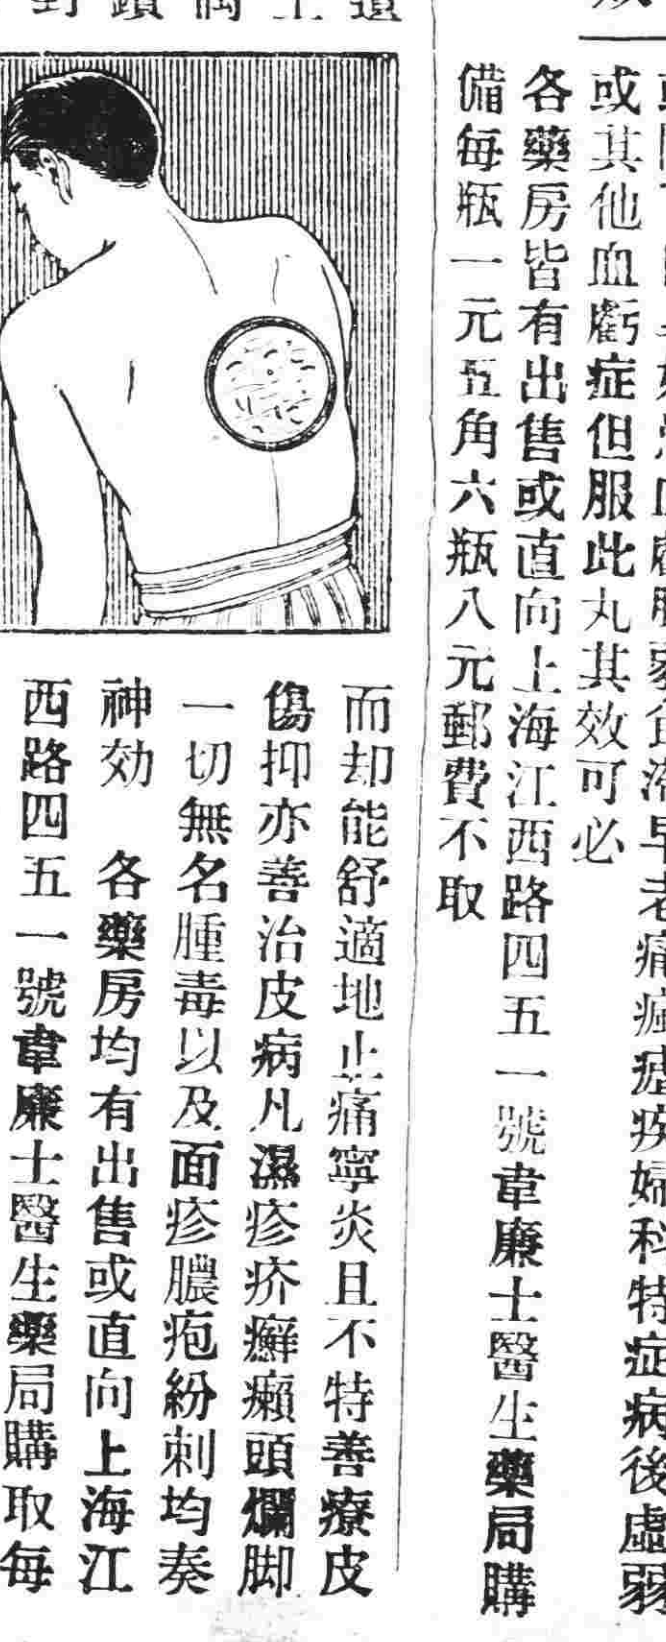 老痛瘋瘧疾婦科特症病後虛弱
或其他血虧症但服此丸其效可必
各藥房皆有出售或直向上海江西路四五一號韋廉士醫生藥局購
備每瓶一元五角六瓶八元郵費不取
而却能舒適地止痛寧炎且不特善療皮
傷抑亦善治皮病凡濕疹疥癬癩頭爛脚
一切無名腫毒以及面疹膿疱紛刺均奏
神効　各藥房均有出售或直向上海江
西路四五一號韋廉士醫生藥局購取每